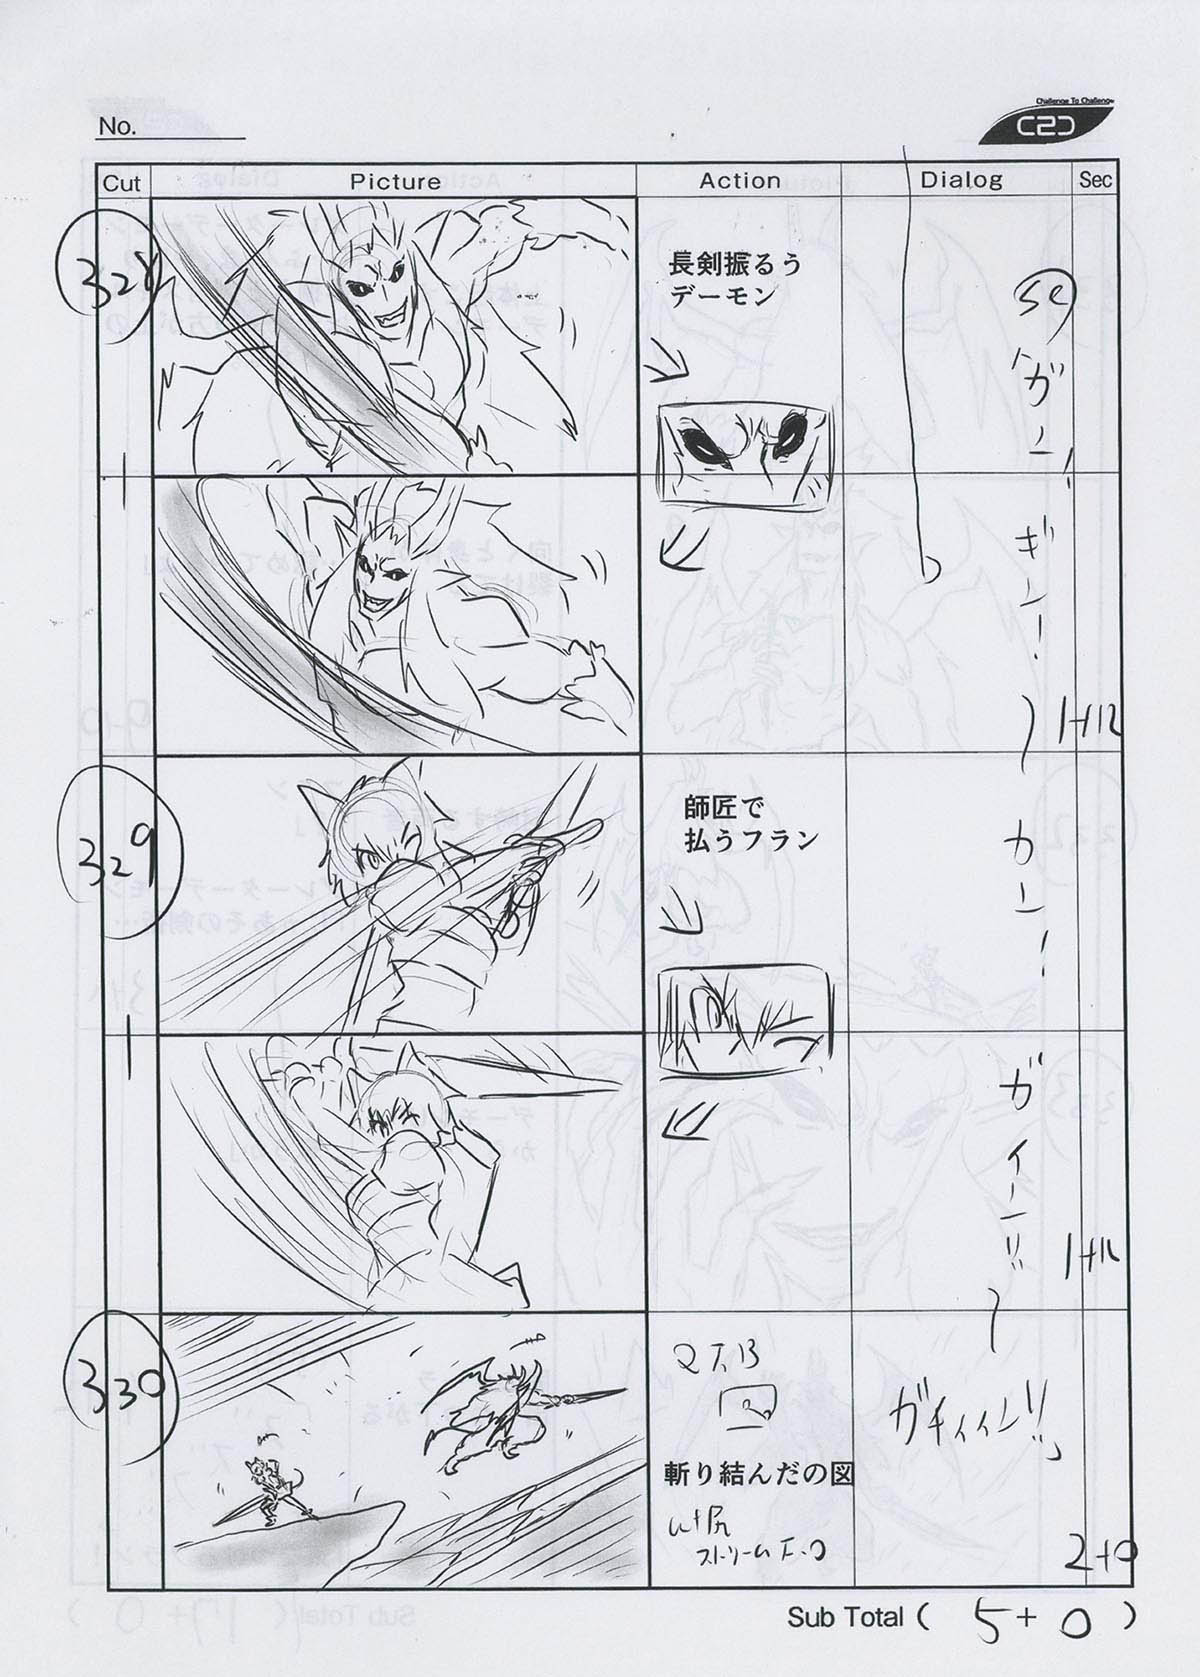 Challenge To Challenge
C2C
No.
Cut Picture Action Dialog Sec
328
長剣振るう
デーモン
SE
ガン!
ギン!
1+12
329
師匠で
払うフラン
カン!
ガイーン!!
1+12
330
Q T.B
斬り結んだの図
カット尻
ストリームF.O
ガキィィン!!
2+0
Sub Total ( 5+0 )